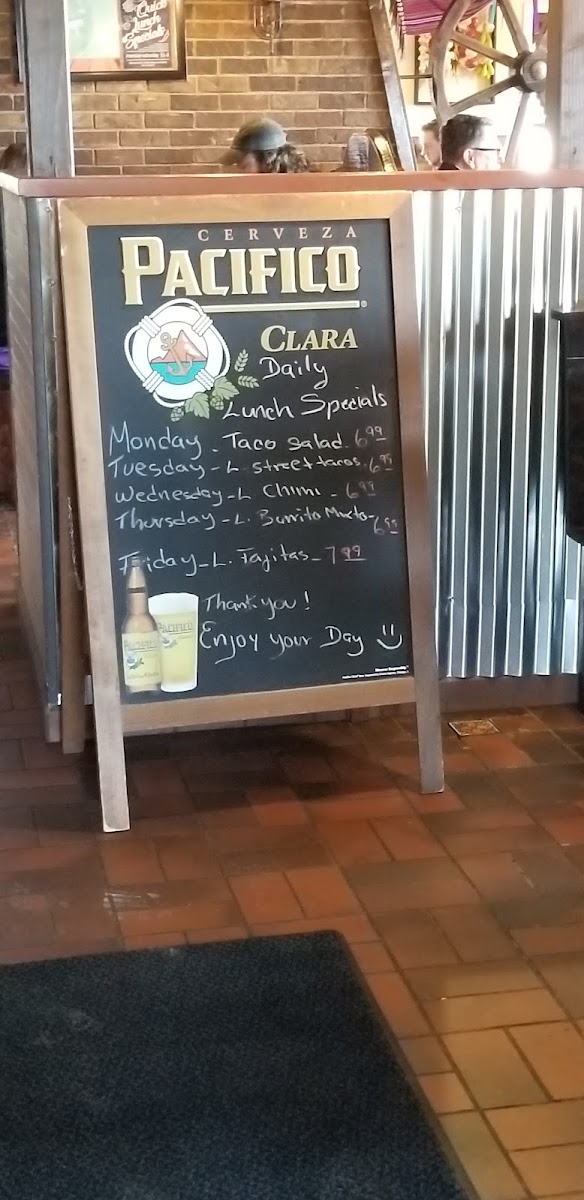 Quick
Lunch
Specials
CERVEZA
PACIFICO
CLARA
Daily
Lunch Specials
Monday - Taco Salad. 6.99
Tuesday - L. street tacos. 6.99
Wednesday - L Chimi - 6.99
Thursday - L. Burrito Mixto - 6.99
Friday - L. Fajitas - 7.99
Thank you!
Enjoy your Day
PACIFICO
PACIFICO